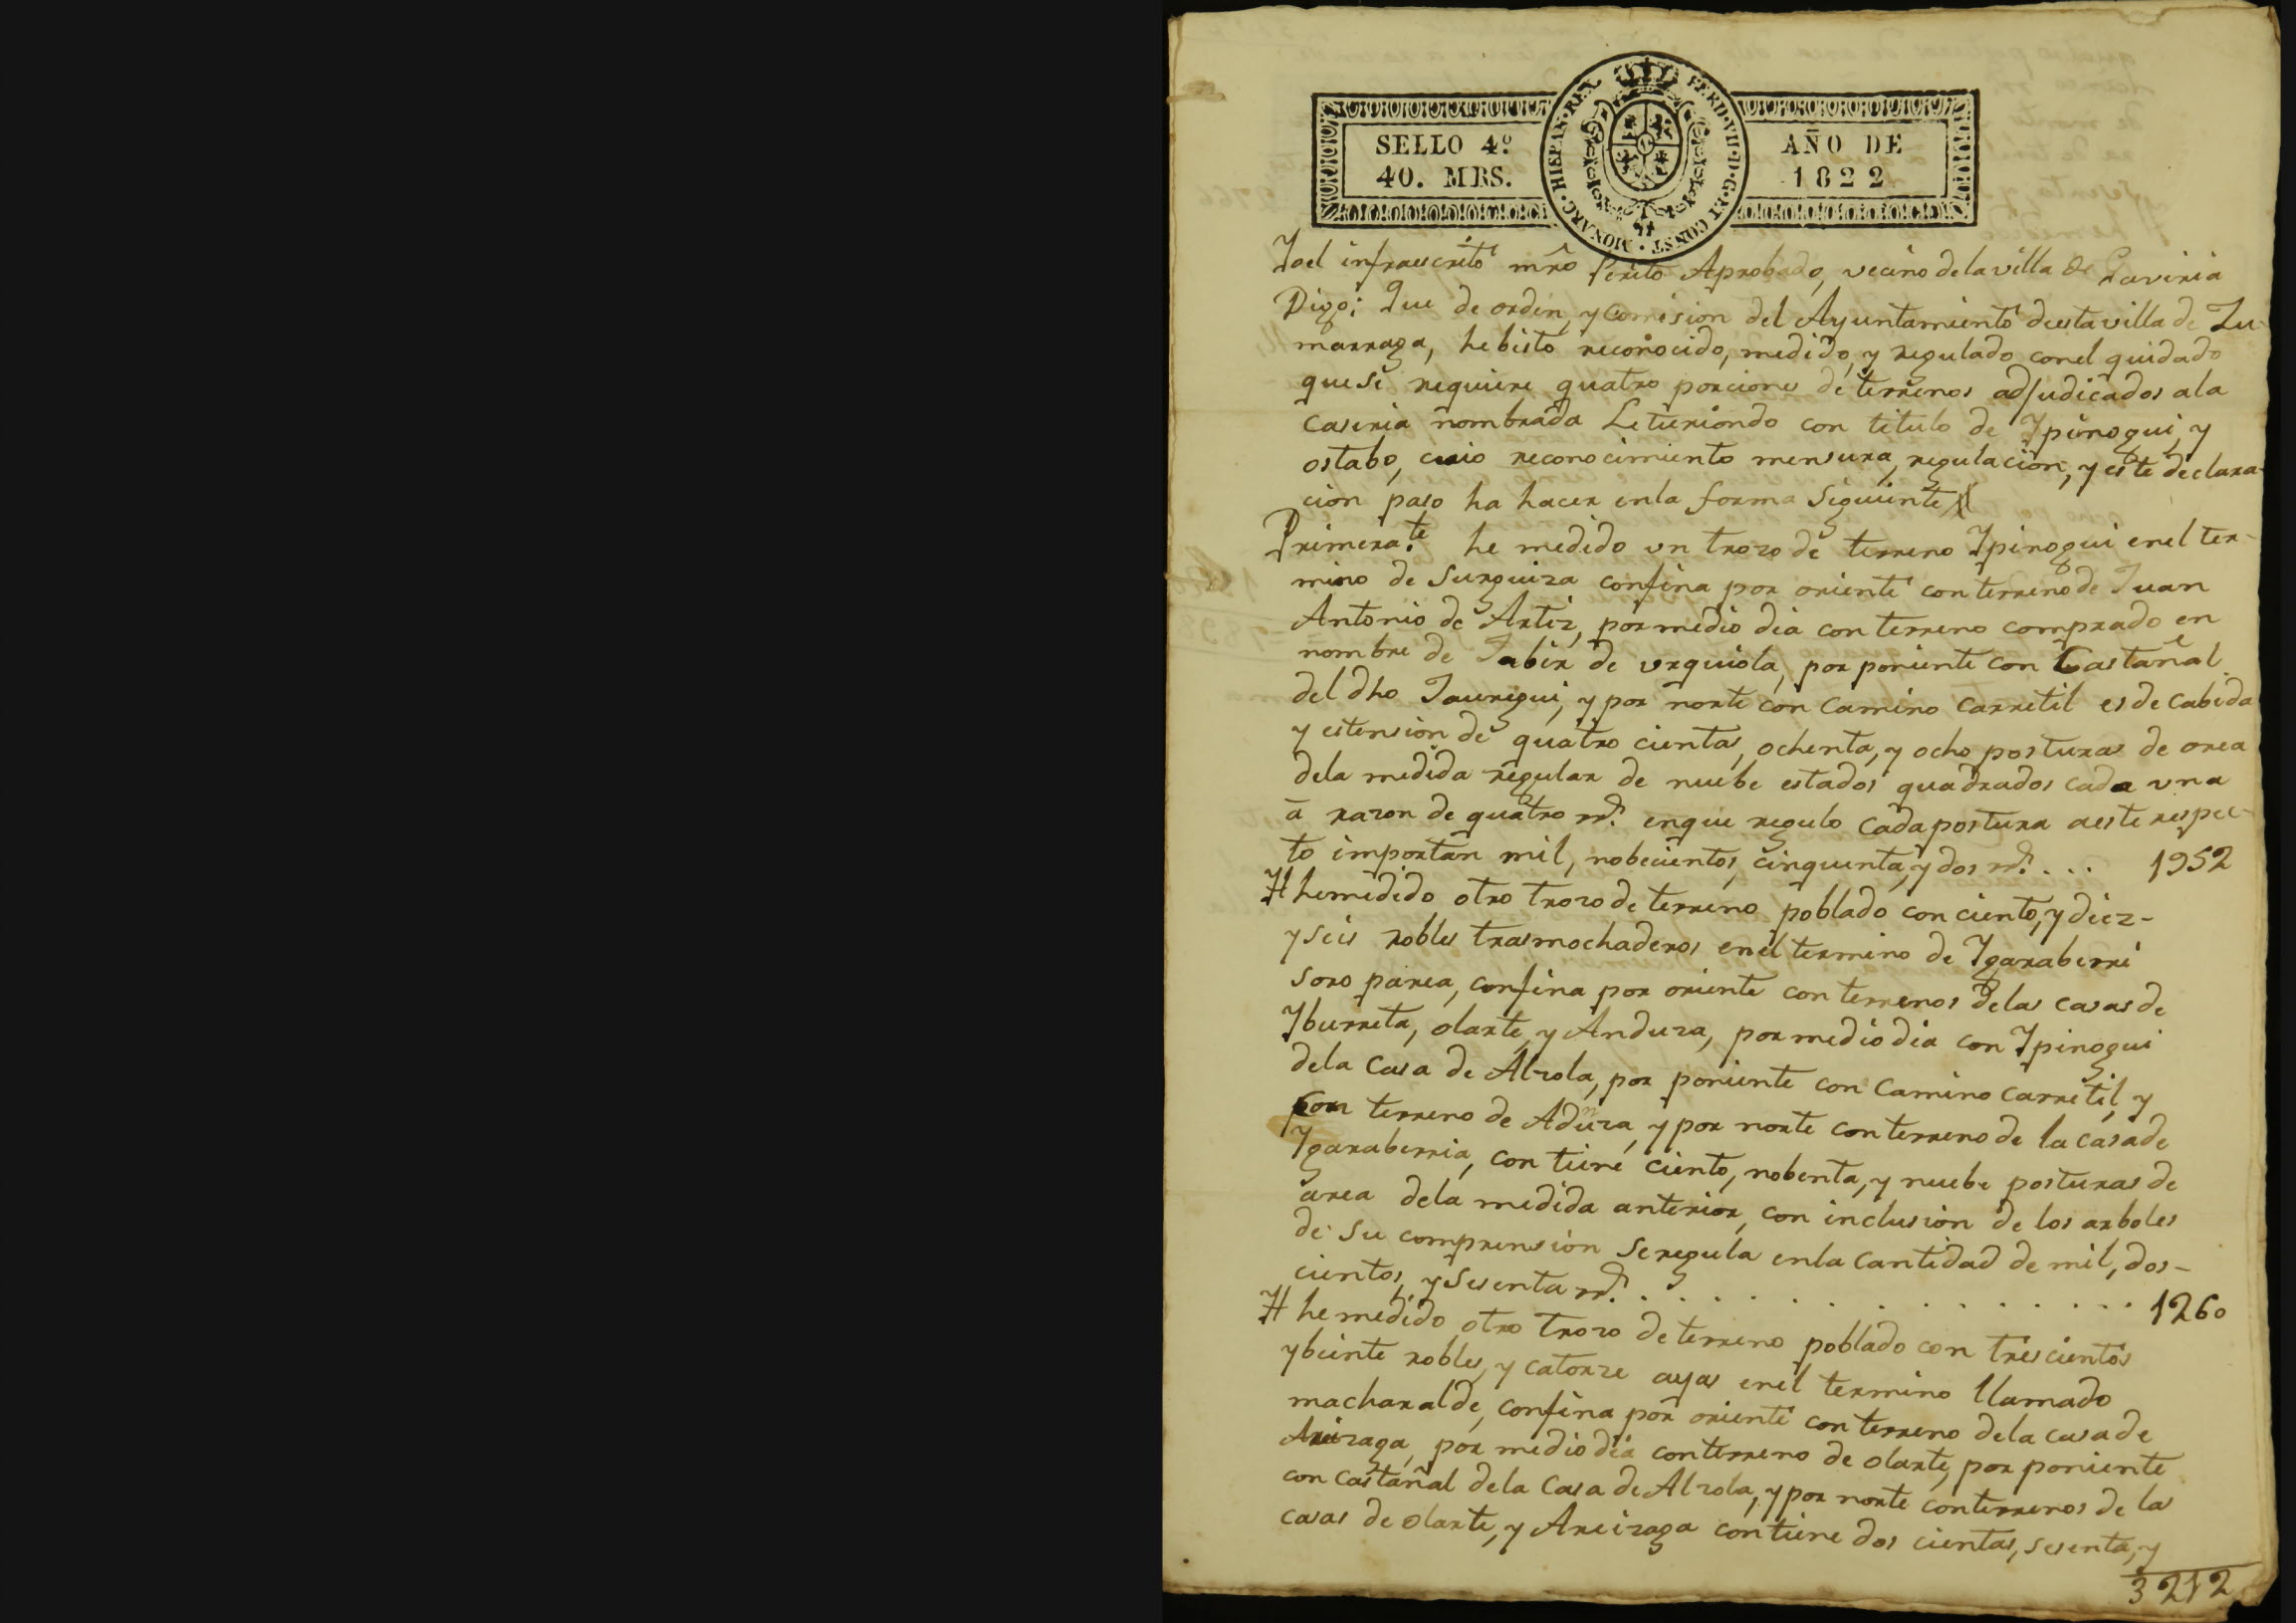 SELLO 4º
40. MRS.
HISPAN·REX FERD·VII·D·G·ET CONST·MONARC·
AÑO DE
1822
Yo el infraescrito mro Perito Aprobado, vecino de la villa de Gaviria
Digo: Que de orden, y comision del Ayuntamiento de esta villa de Zu-
marraga, he bisto reconocido, medido, y regulado con el quidado
que se requiere quatro porciones de terrenos adjudicados ala
caseria nombrada Leturiondo con titulo de Ypinogui, y
ostabo, cuio reconocimiento mensura, regulacion, y este declara-
cion paso ha hacer en la forma siguiente
Primera.te he medido un trozo de terreno Ypinogui en el ter-
mino de Surquiza confina por oriente con terreno de Juan
Antonio de Artiz, por medio dia con terreno comprado en
nombre de Jabier de urquiola, por poniente con Castañal
del dho Jauregui, y por norte con Camino Carretil es de Cabida
y estension de quatro cientas, ochenta, y ocho posturas de area
dela medida regular de nuebe estados quadrados cada una
a razon de quatro rr.s en que regulo cada postura a este respec-
to importan mil, nobecientos, cinquenta, y dos rr.s . . . 1952
Yt he medido otro trozo de terreno poblado con ciento, y diez-
y seis robles trasmochaderos en el termino de Ygaraberri
soro parea, confina por oriente con terrenos de las casas de
Yburreta, olarte, y Anduza, por medio dia con Ypinogui
dela Casa de Alzola, por poniente con Camino Carretil, y
con terreno de Aduza, y por norte con terreno de la casa de
Ygaraberria, contiene ciento, nobenta, y nuebe posturas de
area dela medida anterior, con inclusion de los arboles
de su comprension se regula en la cantidad de mil, dos-
cientos, y sesenta rr.s . . . . . . . . . . . . 1260
Yt he medido otro trozo de terreno poblado con trescientos
y beinte robles, y catorze ayas en el termino llamado
macharalde, confina por oriente con terreno de la casa de
Areizaga, por medio dia con terreno de olarte, por poniente
con Castañal dela Casa de Alzola, y por norte con terrenos de las
casas de olarte, y Areizaga contiene dos cientas, sesenta, y
3212